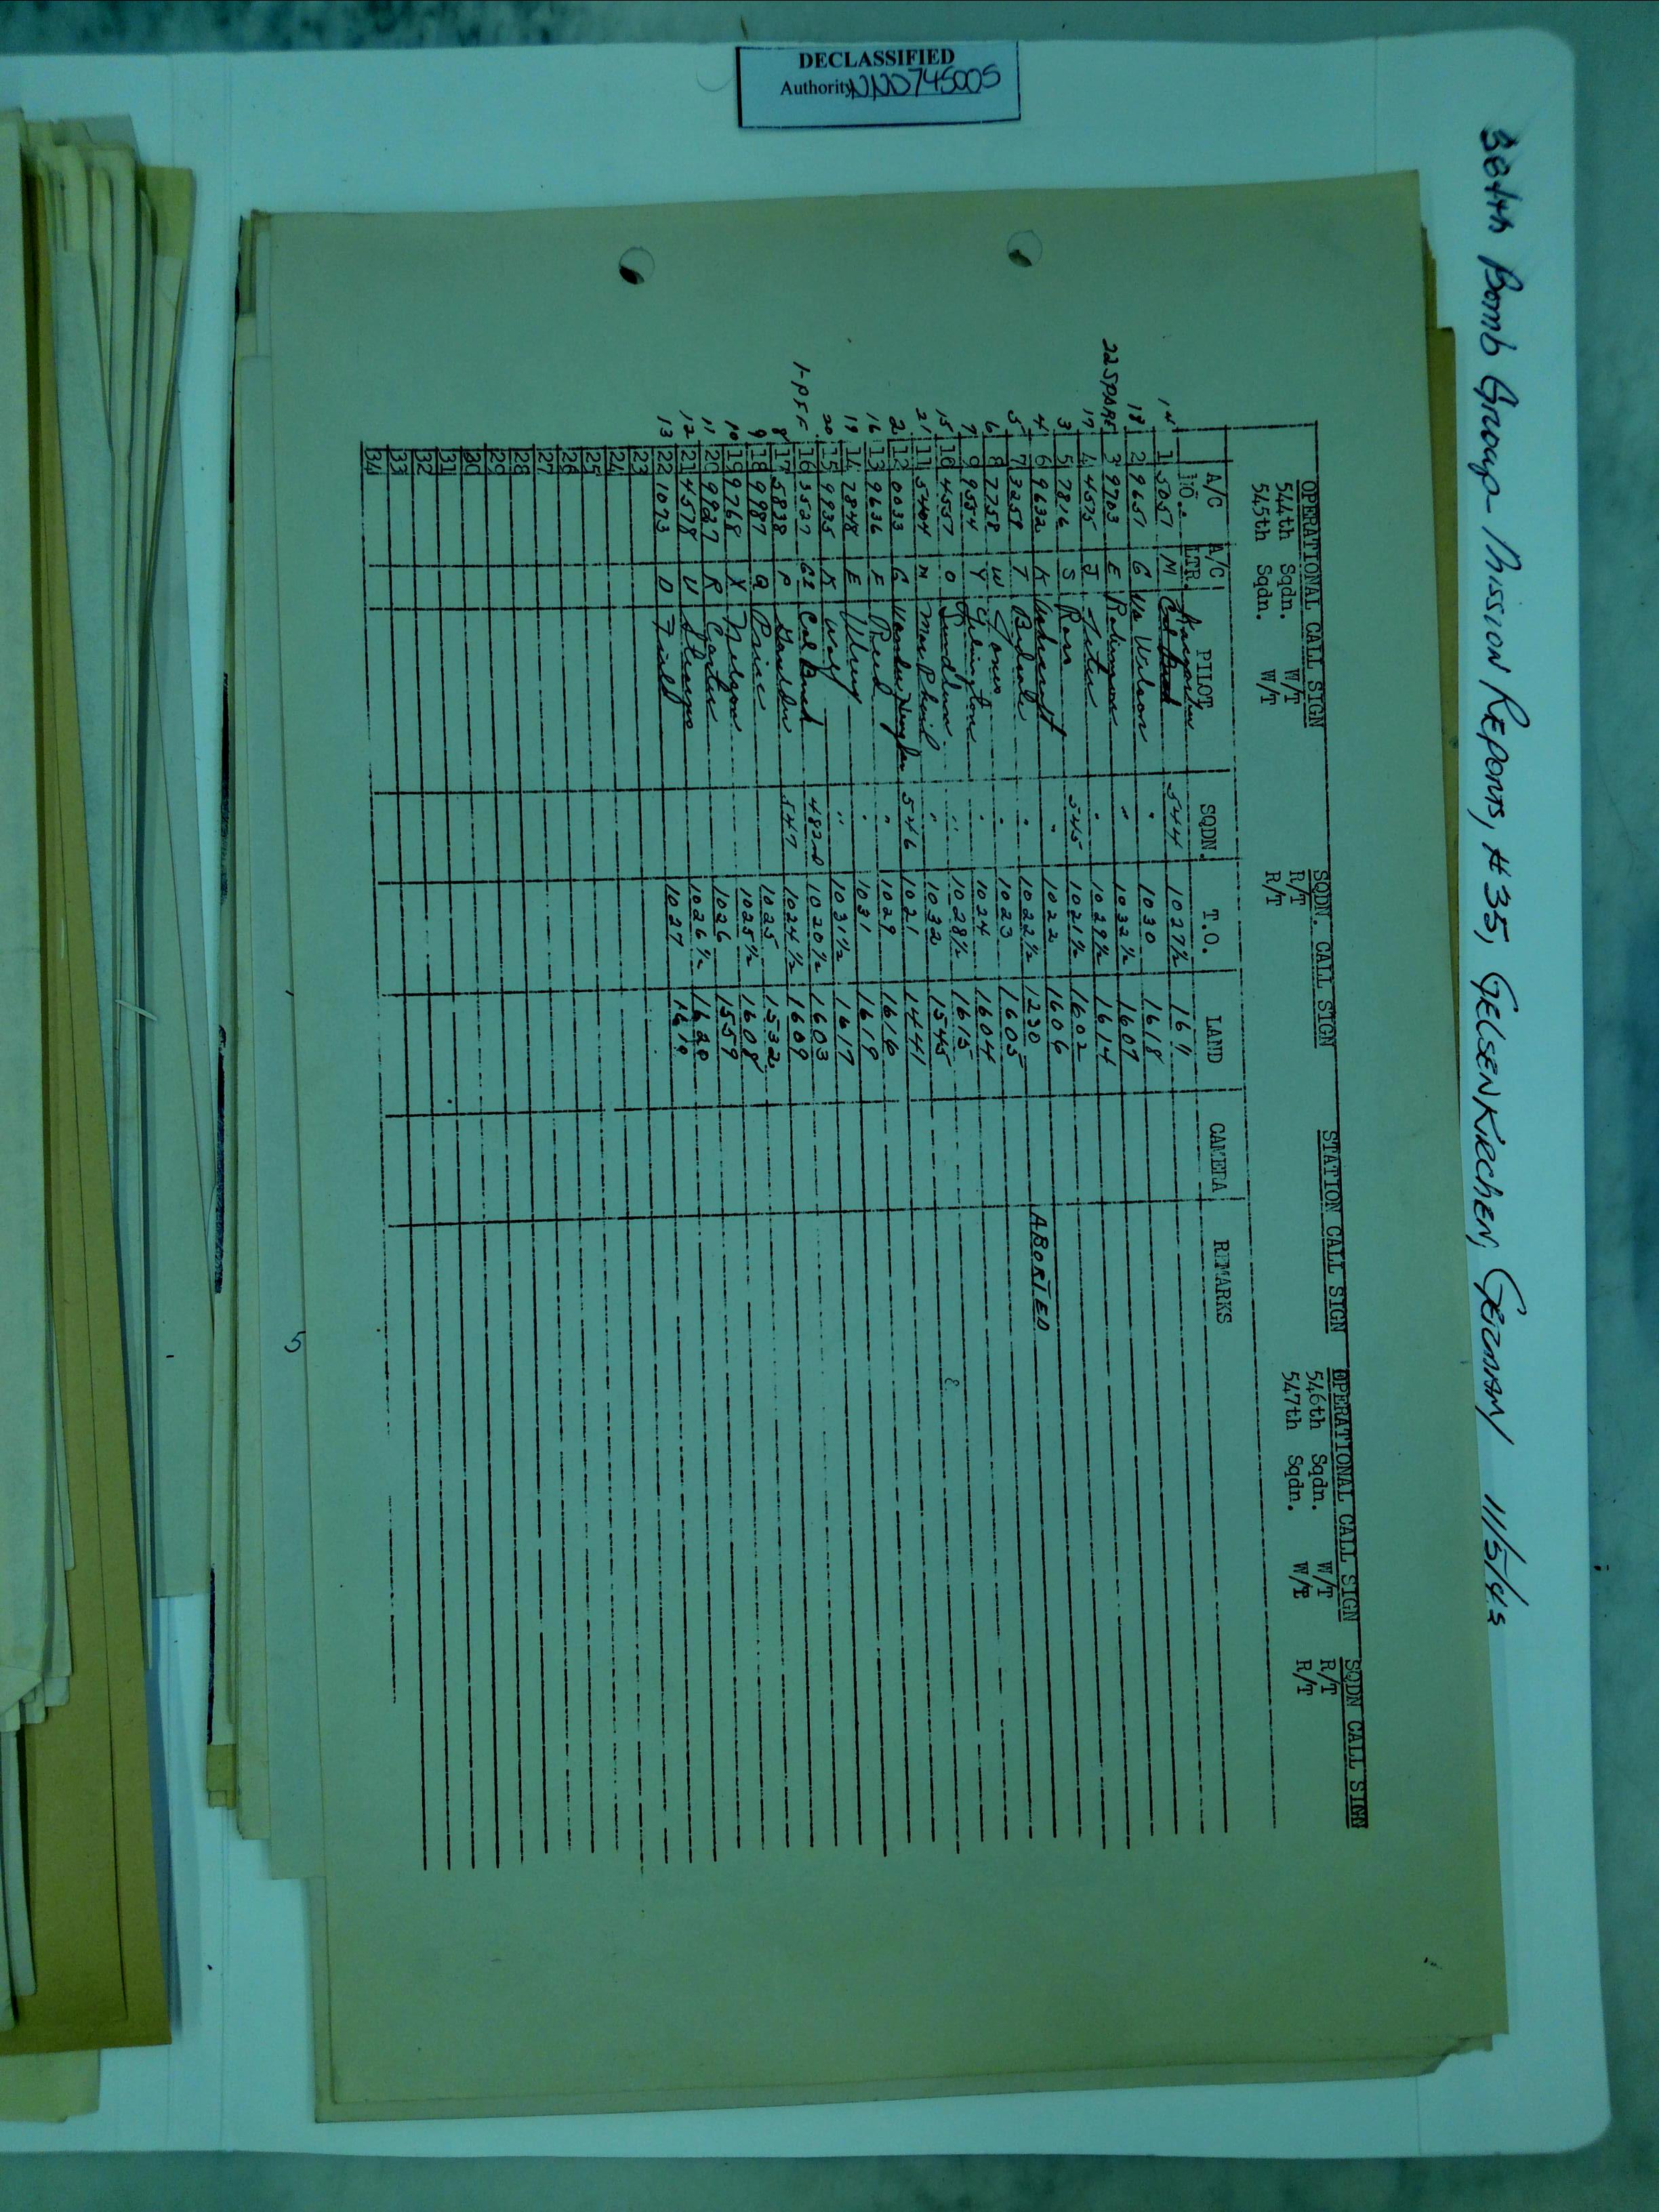 DECLASSIFIED
Authority NND745005
384th Bomb Group Mission Reports, #35, Gelsenkirchen, Germany 11/5/43
OPERATIONAL CALL SIGN SQDN. CALL SIGN STATION CALL SIGN OPERATIONAL CALL SIGN SQDN CALL SIGN
544th Sqdn. W/T R/T 546th Sqdn. W/T R/T
545th Sqdn. W/T R/T 547th Sqdn. W/T R/T
A/C NO. A/C LTR. PILOT SQDN. T.O. LAND CAMERA REMARKS
14 1 5051 M 544 1027½
18 2 9651 G Wilson " 1030 1618
22 SPARE 3 9703 E " 1032½ 1607
17 4 4575 J " 1029½ 1614
3 5 7816 S Ross 545 1021½ 1602
4 6 9632 K " 1022 1606
5 7 3259 T " 1022½ 1230 ABORTED
6 8 7758 W Jones " 1023 1605
7 9 9554 Y " 1024 1604
15 10 4557 O " 1028½ 1615
21 11 5404 M " 1032 1545
2 12 0033 G 546 1021 1441
16 13 9636 F Reed " 1029 1616
19 14 2848 E " 1031 1619
20 15 9935 K Wolf " 1031½ 1617
1-PFF 16 3527 482nd 1020½ 1603
8 17 5838 P 547 1024½ 1609
9 18 9987 Q 1025 1532
10 19 9768 X Nelson 1025½ 1608
11 20 9927 R 1026 1559
12 21 4578 U 1026½ 1620
13 22 1073 D 1027
23
24
25
26
27
28
29
30
31
32
33
34
5